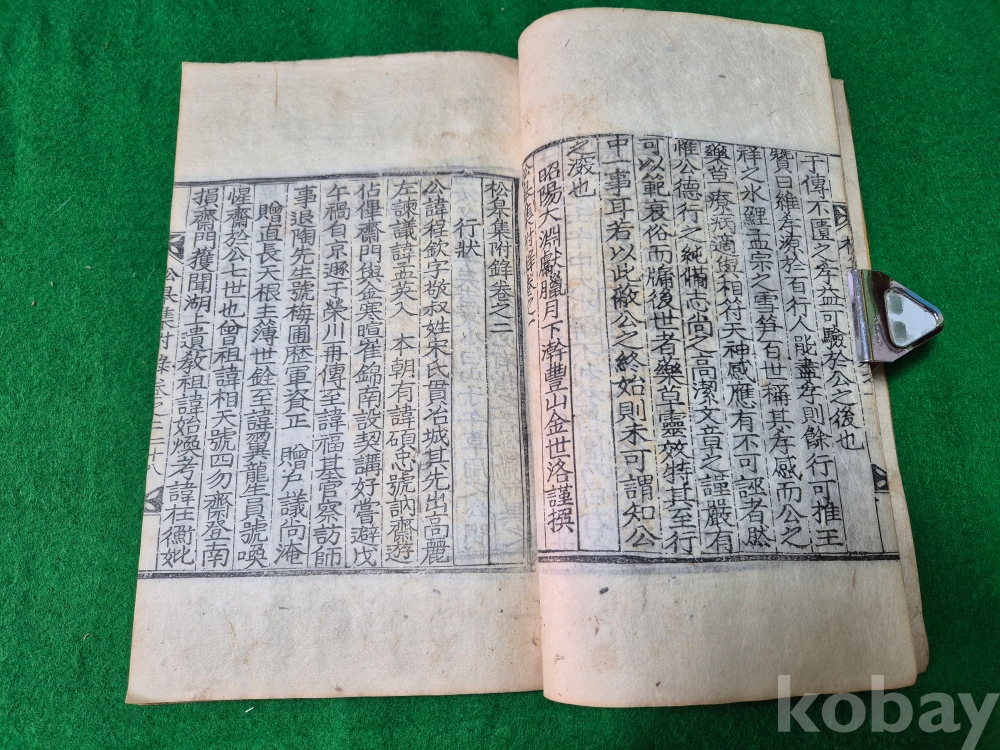 于傳不匱之孝益可驗於公之後也
贊曰維孝源於百行人能盡孝則餘行可推王
祥之氷鯉孟宗之雪笋百世稱其孝感而公之
樂草療病適與相符天神感應有不可誣者然
惟公德行之純備志尚之高潔文章之謹嚴有
可以範衰俗而牖後世者樂草靈效特其至行
中一事耳若以此敝公之終始則未可謂知公
之深也
昭陽大淵獻臘月下澣豊山金世洛謹撰
松皐集附錄卷之二
行狀
公諱程欽字敬叔姓宋氏貫冶城其先出高麗
左諫議諱孟英入 本朝有諱碩忠號訥齋遊
佔俾齋門與金寒暄崔錦南設契講好嘗避戊
午禍自京遯于榮川再傳至諱福基官察訪師
事退陶先生號梅圃歷軍資正 贈戶議尚淹
贈直長天根主薄世銓至諱翼龍生員號喚
惺齋於公七世也曾祖諱相天號四勿齋登南
損齋門獲聞湖上遺敎祖諱始煥考諱柱衡妣
松皐集附錄卷之二 十八
kobay